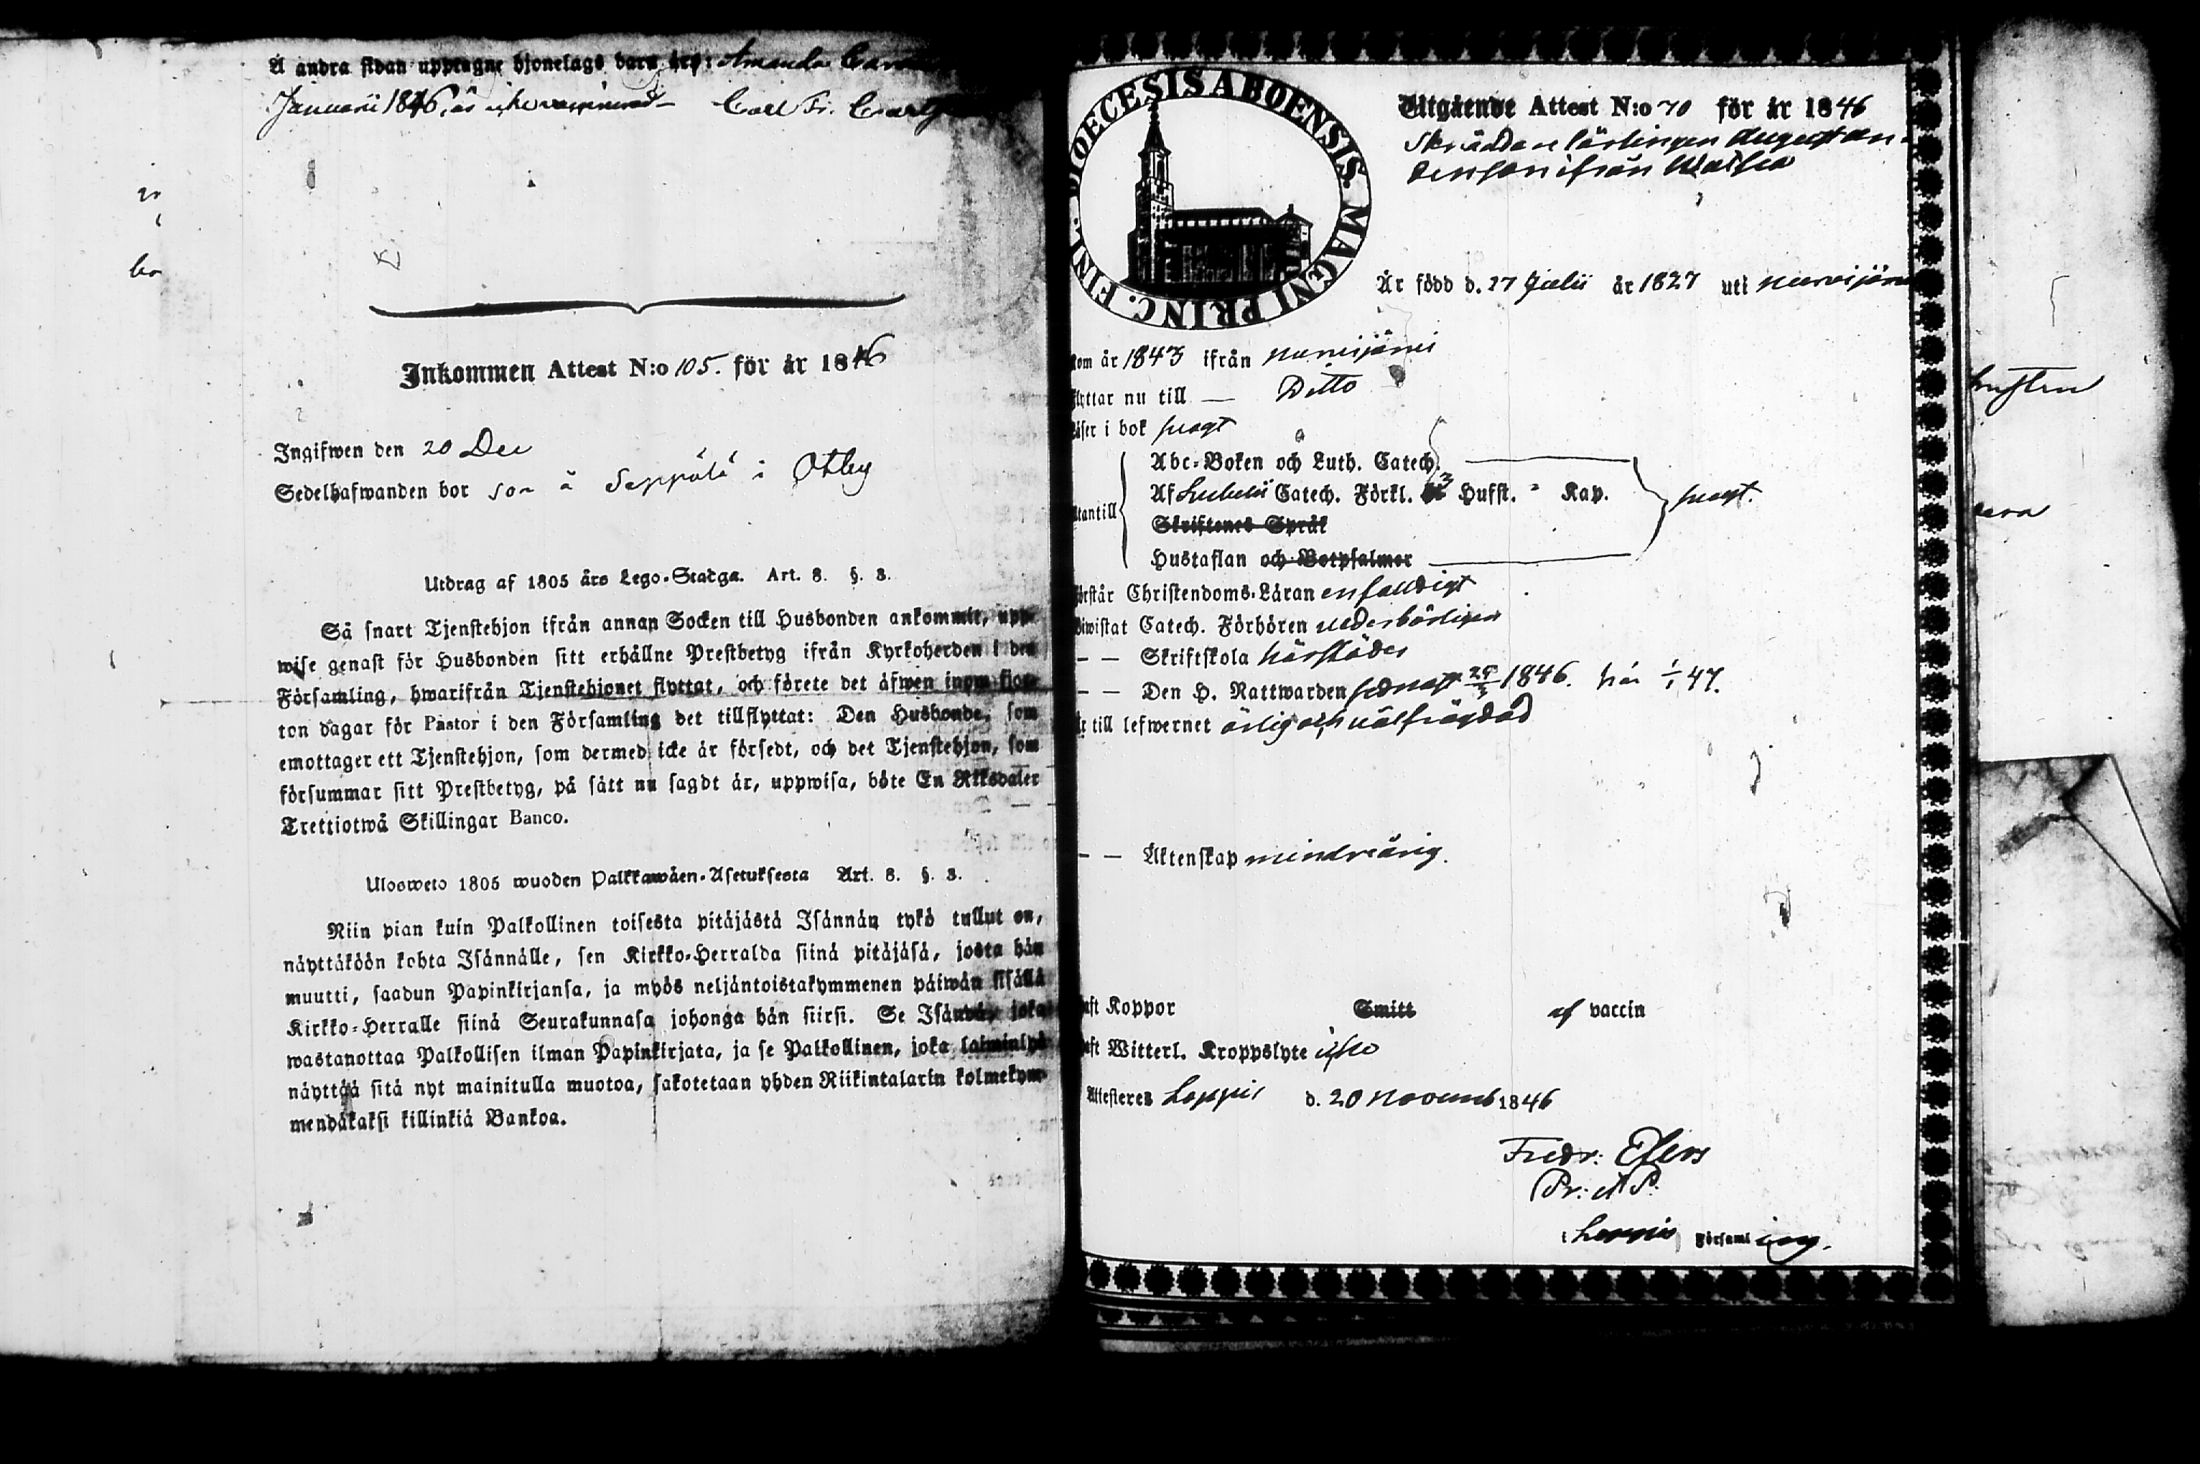 Å andra sidan upptagne hjonelags barn äro: Amanda
Januarii 1846, är icke vaccinerad — Carl Fr.
Inkommen Attest N:o 105. för år 1846
Ingifwen den 20 Dec
Sedelhafwanden bor son å Seppälä i Otby
Utdrag af 1805 års Lego-Stadga. Art. 8. §. 3.
Så snart Tjenstehjon ifrån annan Socken till Husbonden ankommit, upp-
wise genast för Husbonden sitt erhållne Prestbetyg ifrån Kyrkoherden i den
Församling, hwarifrån Tjenstehjonet flyttat, och förete det äfwen inom fjor-
ton dagar för Pastor i den Församling det tillflyttat: Den Husbonde, som
emottager ett Tjenstehjon, som dermed icke är försedt, och det Tjenstehjon, som
försummar sitt Prestbetyg, på sätt nu sagdt är, uppwisa, böte En Riksdaler
Trettiotwå Skillingar Banco.
Ulosweto 1805 wuoden Palkkawäen-Asetuksesta Art. 8. §. 3.
Niin pian kuin Palkollinen toisesta pitäjästä Isännän tykö tullut on,
näyttäköön kohta Isännälle, sen Kirkko-Herralda siinä pitäjäsä, josta hän
muutti, saadun Papinkirjansa, ja myös neljäntoistakymmenen päiwän sisällä
Kirkko-Herralle siinä Seurakunnasa johonga hän siirsi. Se Isäntä, joka
wastanottaa Palkollisen ilman Papinkirjata, ja se Palkollinen, joka laiminlyö
näyttää sitä nyt mainitulla muotoa, sakotetaan yhden Riikintalarin kolmekym-
mendäkaksi killinkiä Bankoa.
DIOECESIS ABOENSIS. MAGNI PRINC. FINL.
Utgående Attest N:o 70 för år 1846
Skräddare lärlingen August An-
dersson ifrån
Är född d. 27 Julii år 1827 uti Nurmijärvi
Kom år 1843 ifrån Nurmijärvi
Flyttar nu till — Ditto
Läser i bok swagt
Utantill
Abc-Boken och Luth. Catech.
Af Catech. Förkl. 3 Hufst. " Kap.
Skriftenes Språk
Hustaflan och Botpsalmer
swagt.
Förstår Christendoms-Läran enfaldigt
Biwistat Catech. Förhören wederbörligen
— — Skriftskola härstädes
— — Den H. Nattwarden sednast 1846. här 1/1 47.
Är till lefwernet ärlig och wälfrägdad
— — Äktenskap minderårig.
Haft Koppor Smitt af vaccin
Haft Witterl. Kroppslyte icke
Attesteres Loppis d. 20 Novemb 1846
Fredr: Elfers
Pr: A P.
i Loppis Församling.